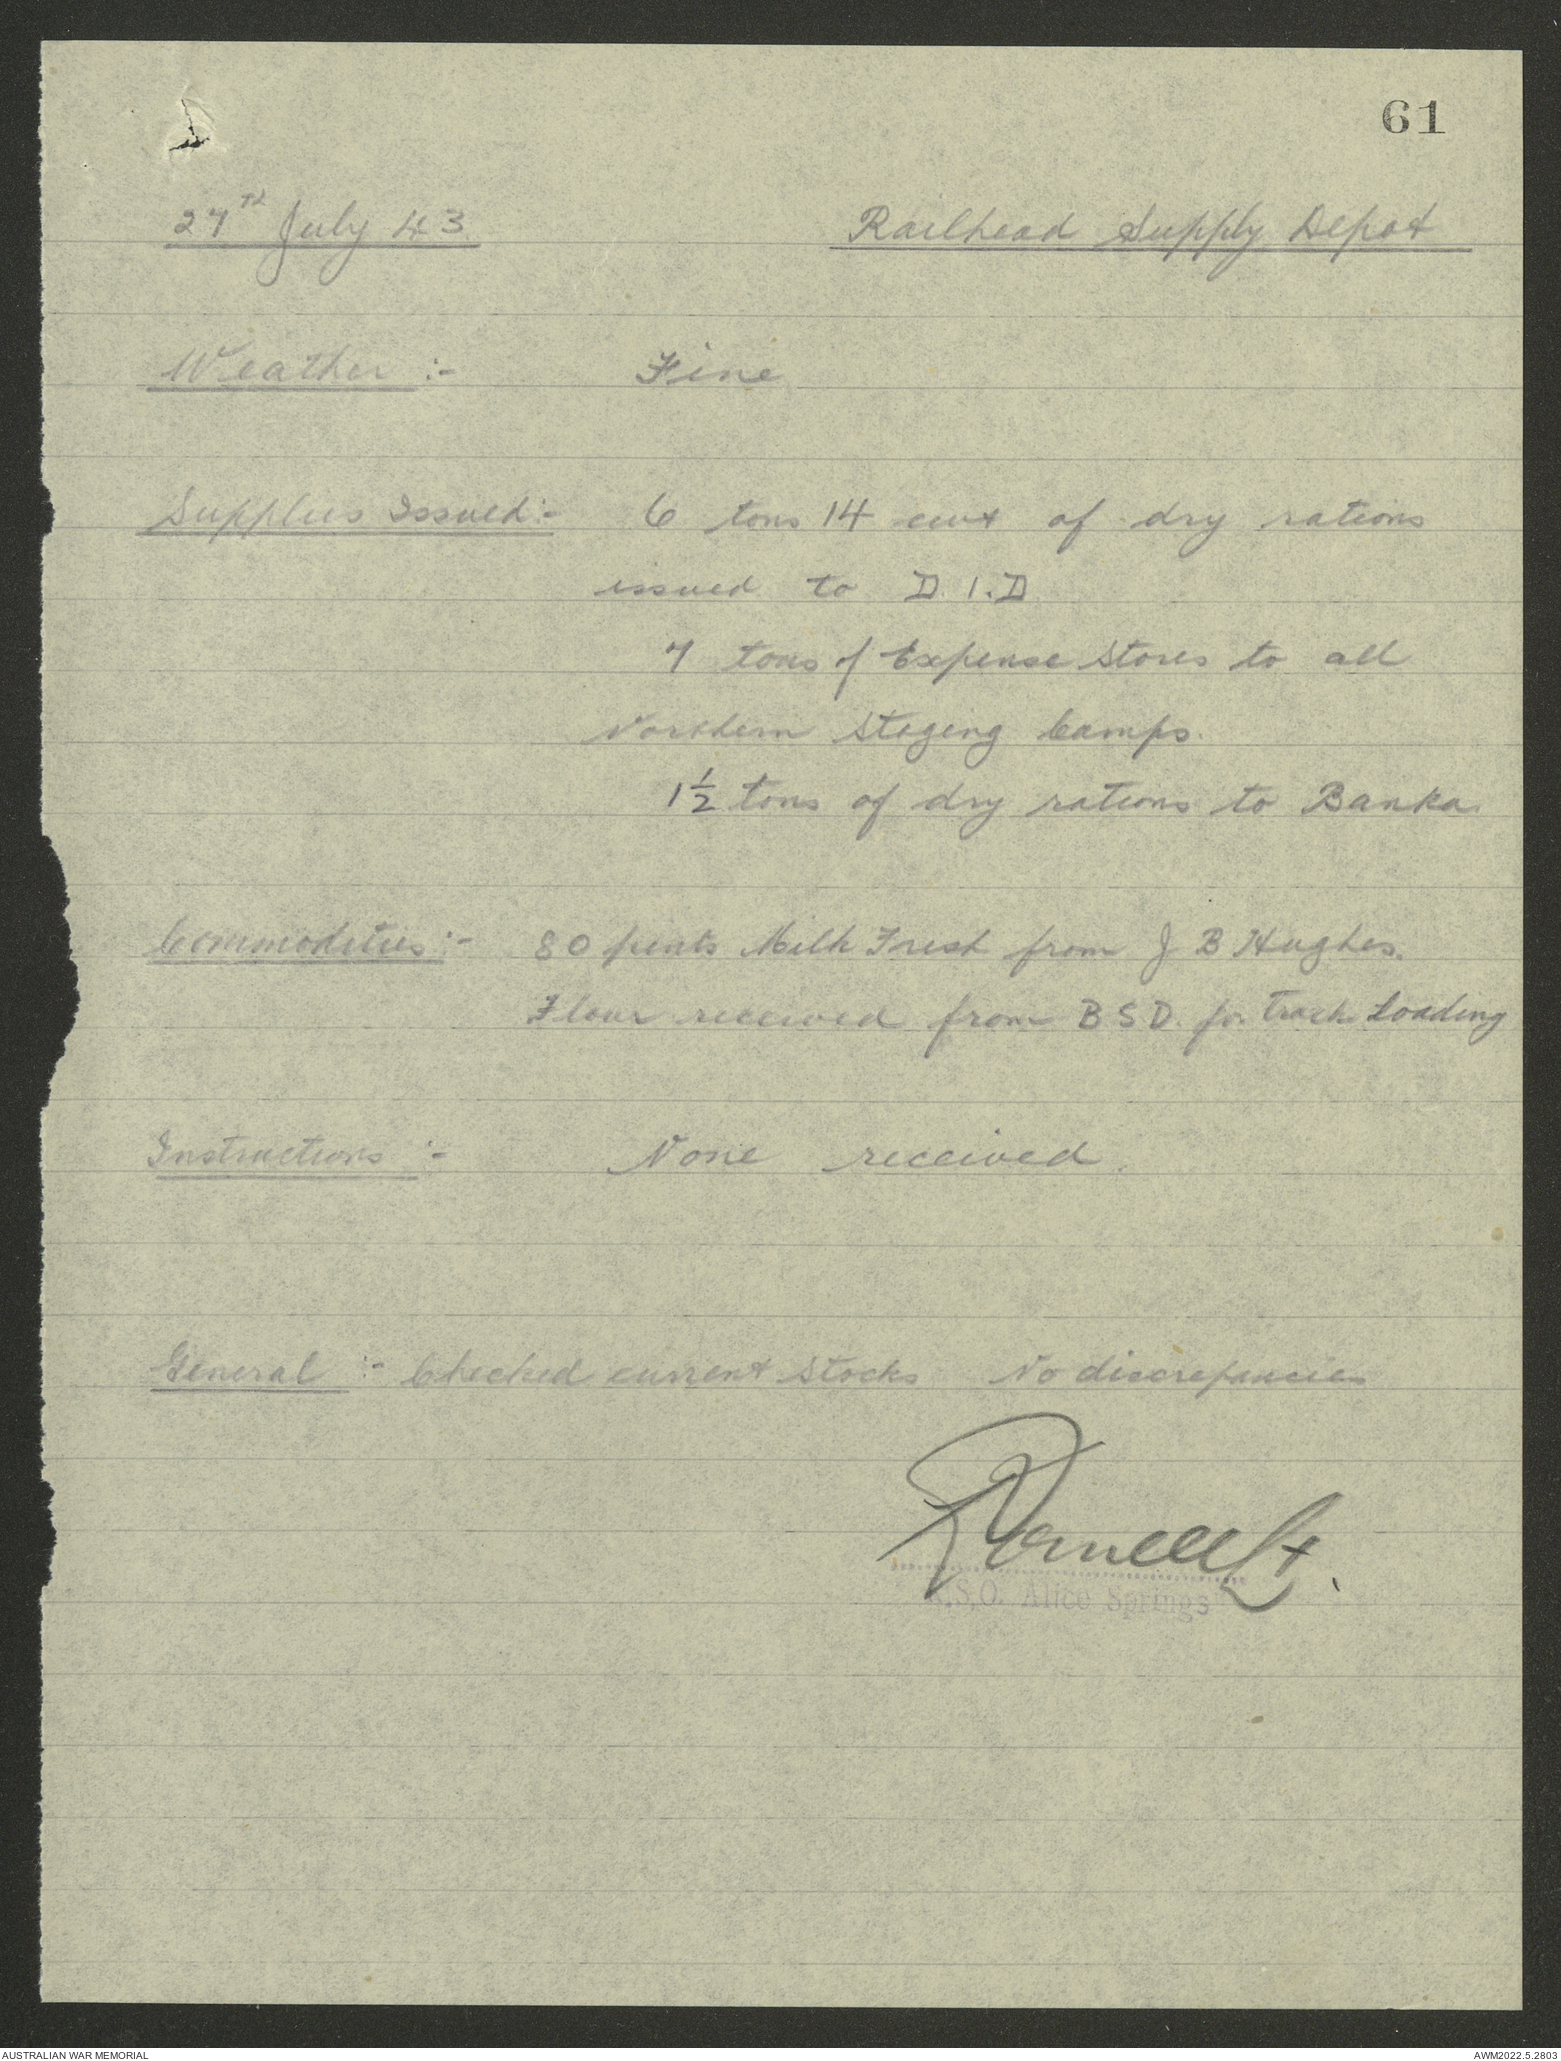 61
27th July 43 Railhead Supply Depot
Weather :- Fine
Supplies Issued :- 6 tons 14 cwt of dry rations
issued to D.I.D
7 tons of Expense Stores to all
Northern Staging Camps.
1½ tons of dry rations to Banka.
Commodities :- 80 pints Milk Fresh from J B Hughes.
Flour received from B S D. for Track Loading
Instructions :- None received.
General :- Checked current stocks No discrepancies
Lt.
.S.O. Alice Springs
AUSTRALIAN WAR MEMORIAL AWM2022.5.2803